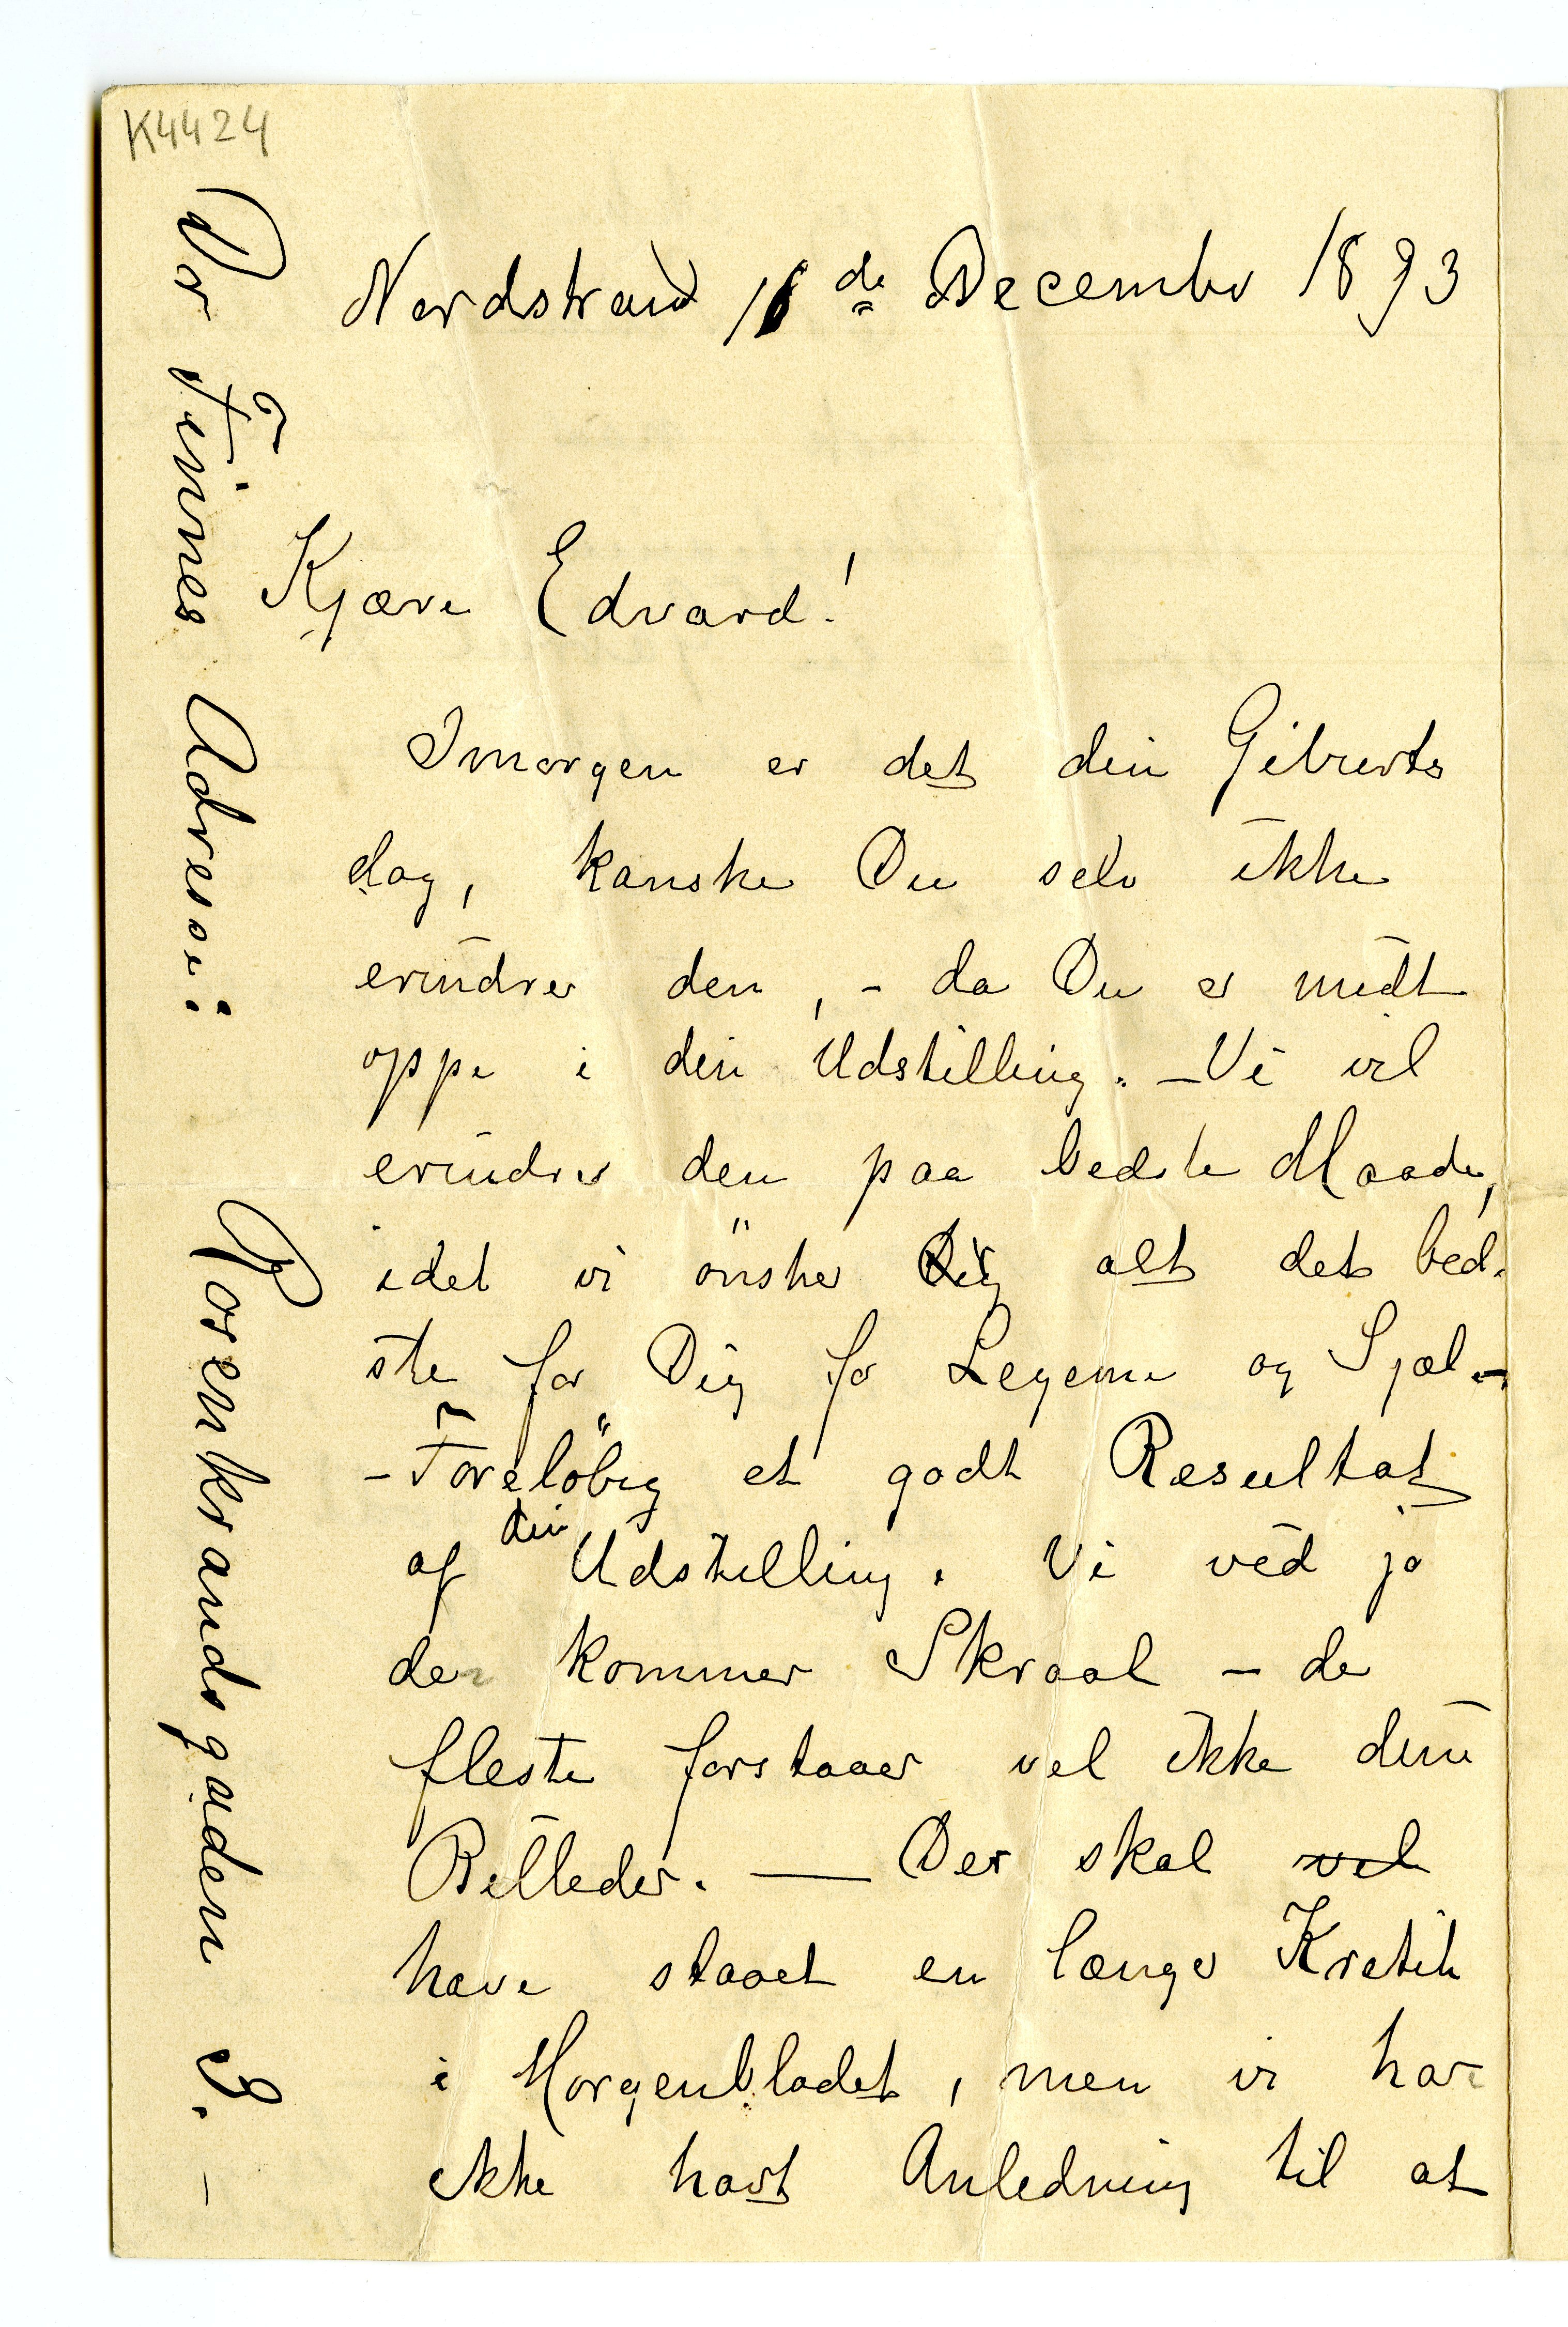 K4424
Nordstrand 11de December 1893
Kjære Edvard!
Imorgen er det din Geburts
dag, kanske Du selv ikke
erindrer den, - da Du er midt
oppe i din Udstilling. - Vi vil
erindre den paa bedste Maade,
idet vi önsker Dig alt det bed-
ste for Dig for Legeme og Sjæl -
- Foreløbig et godt Resultat
af din Udstilling. Vi ved jo
der kommer Skraal - de
fleste forstaaer vel ikke dine
Billeder. — Der skal vel
have staaet en længer Kretik
i Morgenbladet, men vi har
ikke havt Anledning til at
Dr Finnes Adresse:
Rosenkrandsgaden 9. -